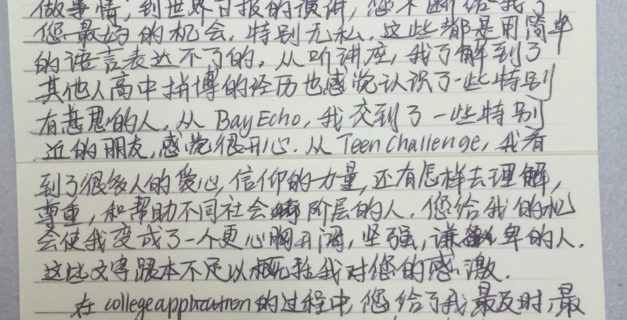 做事情,到世界日报的演讲,您不断给我了
您最好的机会。特别无私。这些都是用简单
的语言表达不了的。从听讲座,我了解到了
其他人高中拼博的经历也感觉认识了一些特别
有意思的人。从 Bay Echo, 我交到了一些特别
近的朋友,感觉很开心。从 Teen Challenge, 我看
到了很多人的爱心,信仰的力量,还有怎样去理解,
尊重,和帮助不同社会阶层的人。您给我的机
会使我变成了一个更心胸开阔,坚强,谦卑的人。
这些文字跟本不足以概括我对您的感激。
在 college application 的过程中,您给了我最及时,最